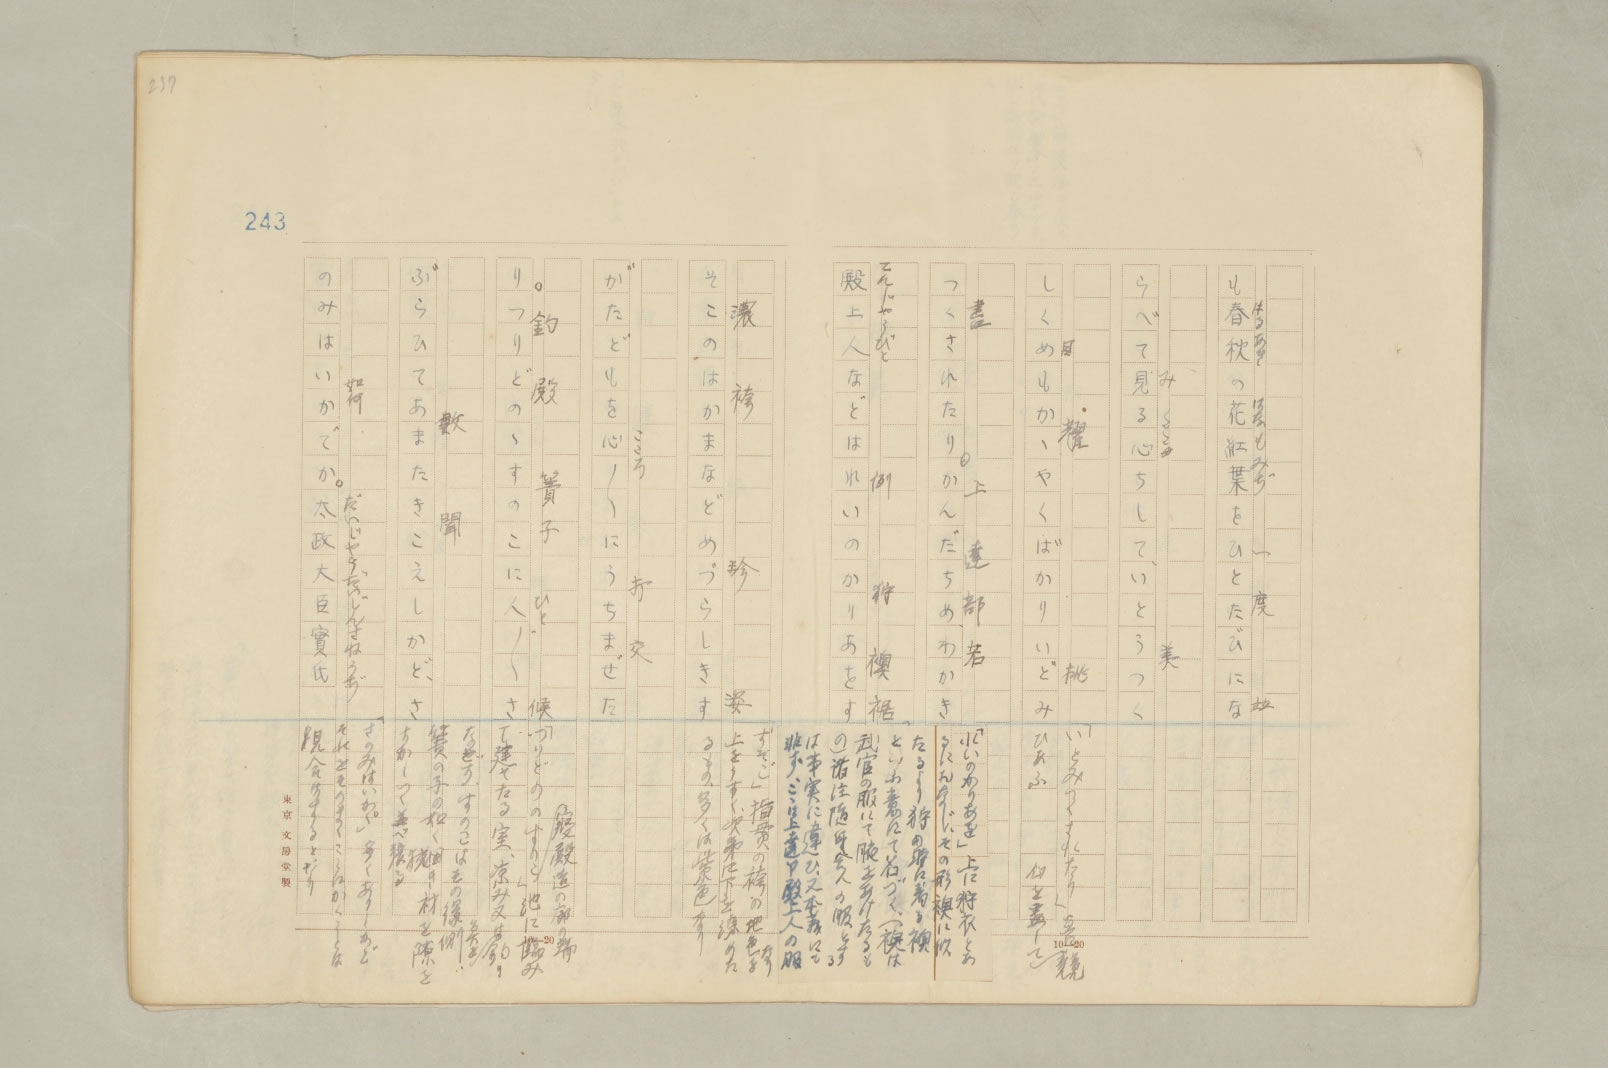 237
243
も春秋の花紅葉をひとたびにな
はるあき
はなもみぢ
一度
らべて見る心ちして、いとうつく
み
こゝち
美
しくめもかゝやくばかりいどみ
目
耀
挑
つくされたり。かんだちめわかき
盡
上達部若
殿上人などはれいのかりあをす
てんじやうびと
例
狩襖裾
そこのはかまなどめづらしきす
濃袴
珍
姿
がたどもを心〳〵にうちまぜた
こころ
打交
り。つりどのゝすのこに人〴〵さ
釣殿
簀子
ひと
候
ぶらひてあまたきこえしかど、さ
數
聞
のみはいかでか。太政大臣實氏
如何
だいじやうだいじんさねうぢ
「いどみつくされたり」
ひあふ
「れいのかりあを」上に狩衣とあ
るにおなじ、その形襖に似
たるより狩の時に着る襖
といふ意にて名づく、(襖は
武官の服にて腋をあけたるも
の)諸注随身舎人の服とする
は事実に違ひ、又本義にも
非ず、こゝは上達部殿上人の服
すそご」指貫の袴の地色を
上をうすく次第に下を濃めた
るもの、多くは紫色なり
「つりどのゝすのこ」
寝殿造の廊の端
て建てたる室、涼み又は釣り
など
すのこはその縁側
簀の子の如く細き材を隙を
すかしつく並べ張る
「さのみはいかで」多くありしかど
東京 文房堂製
10—20
10—20